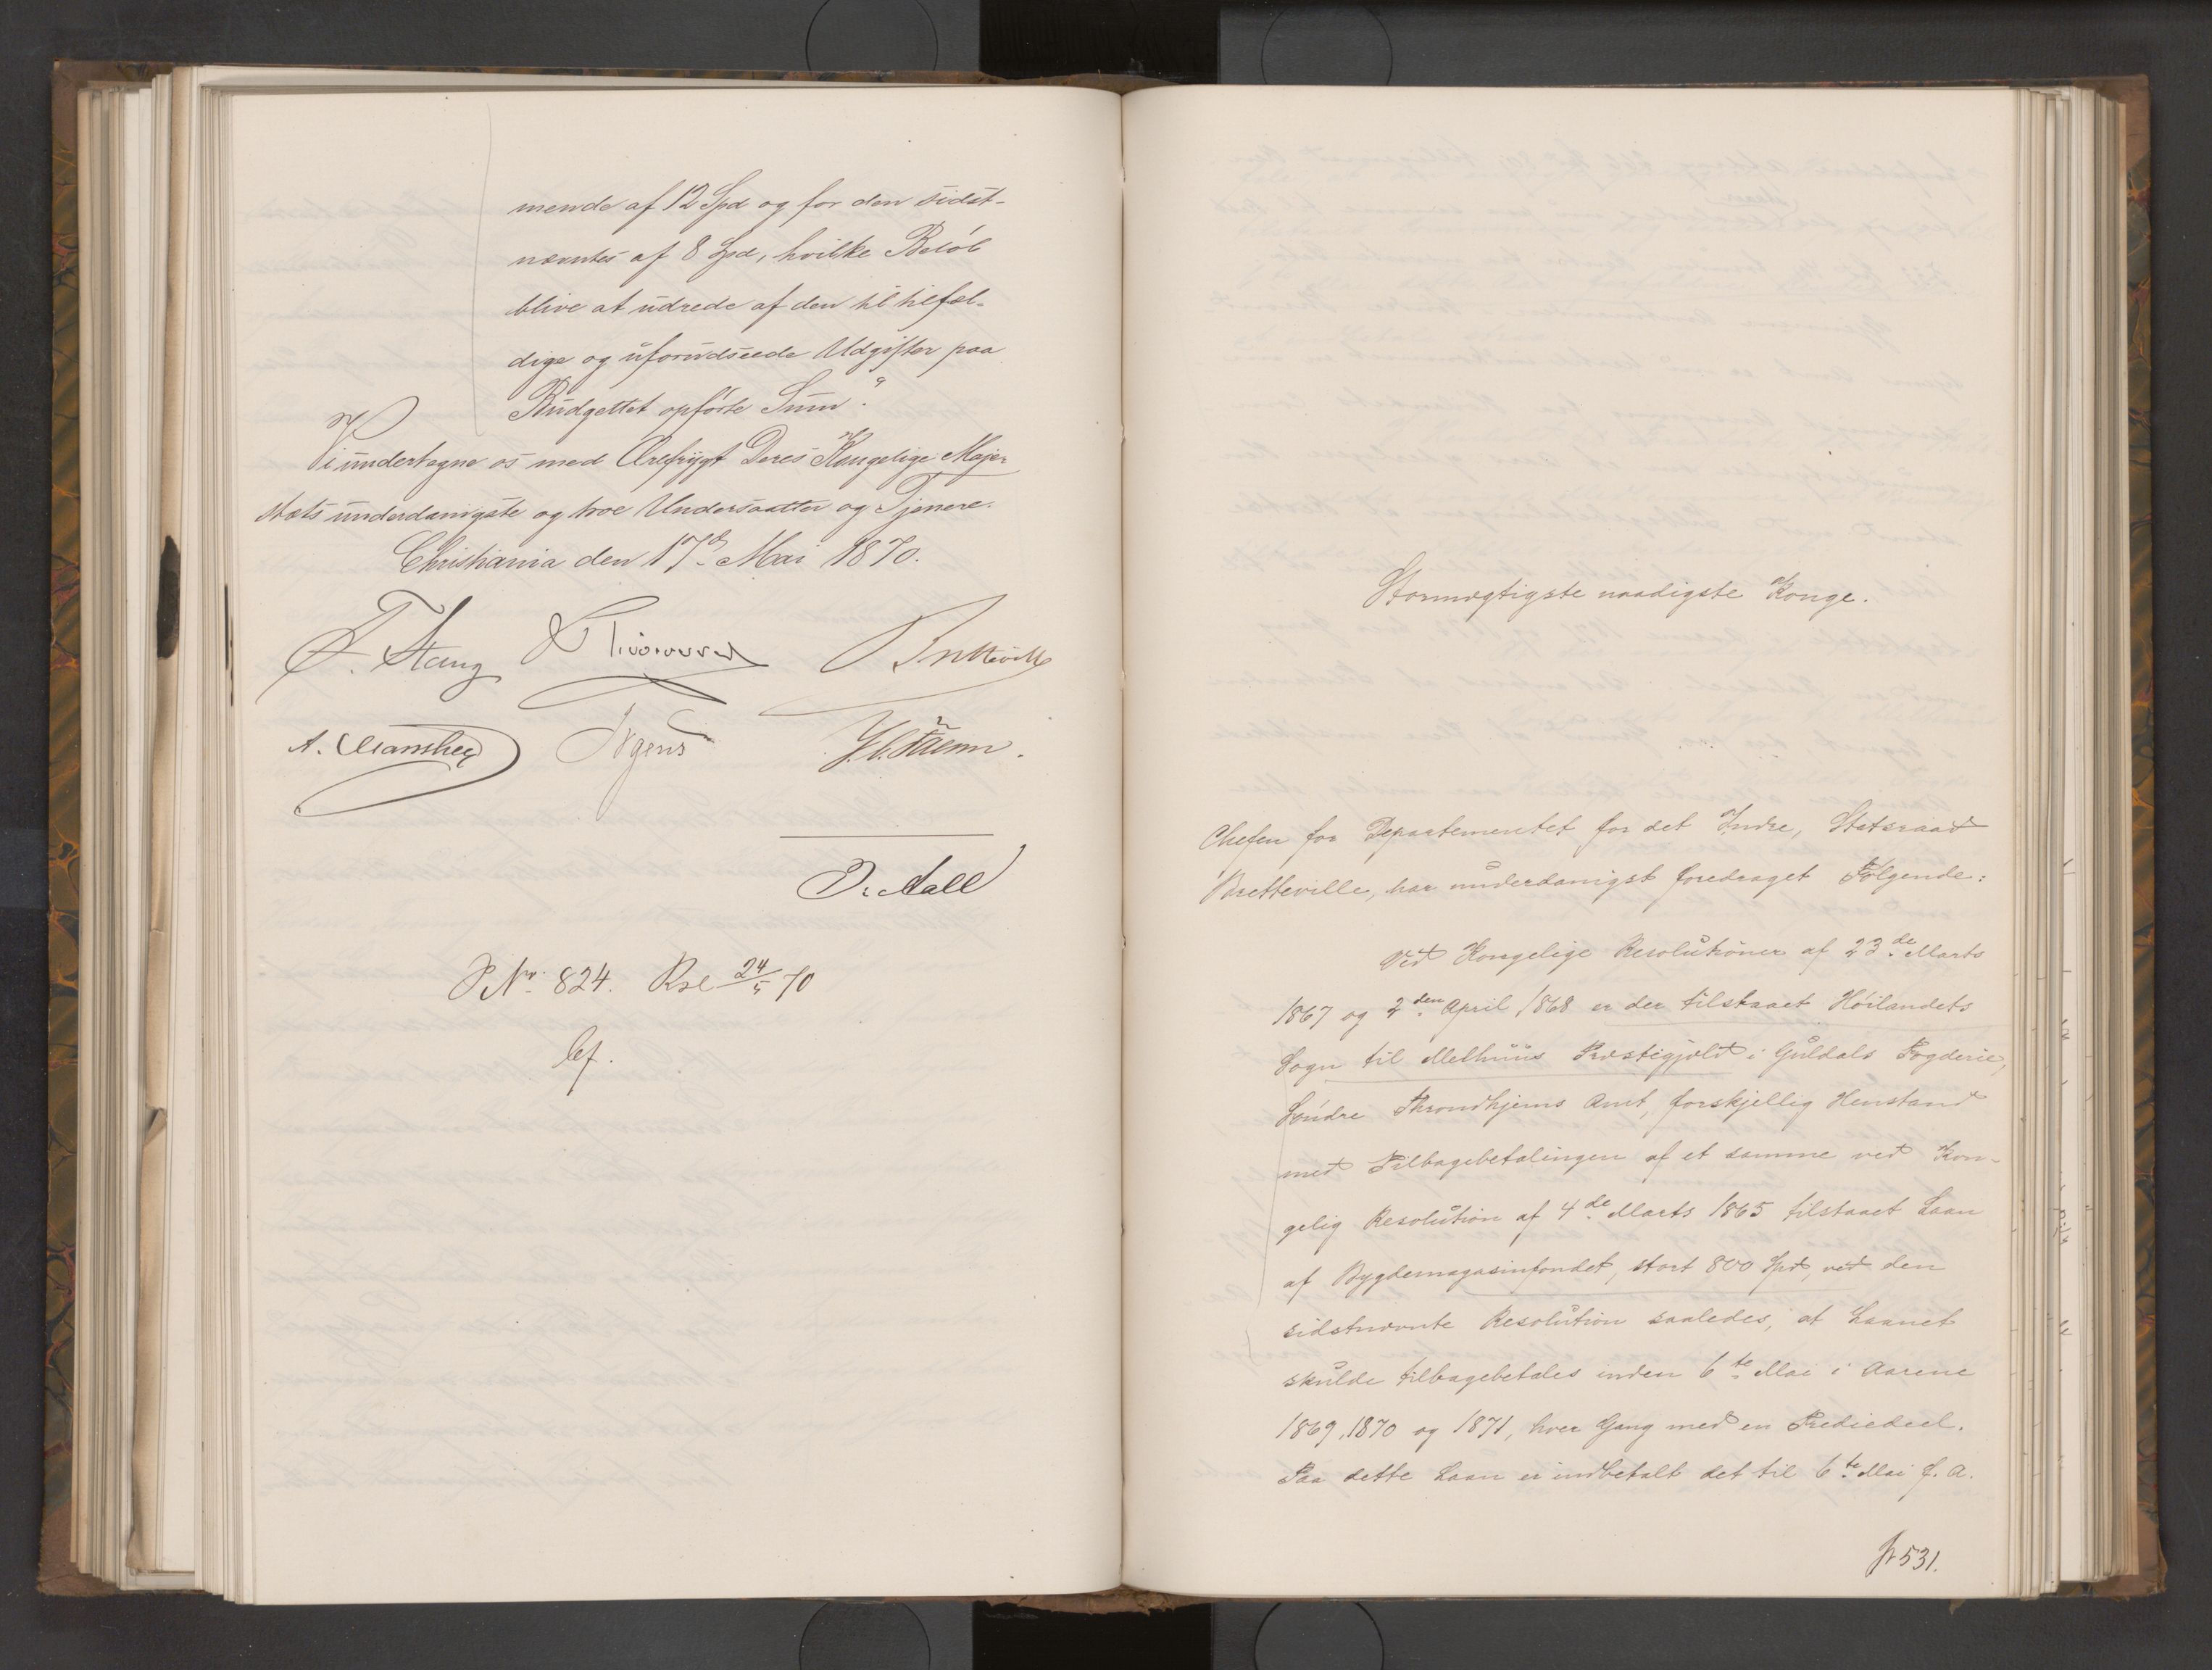 mende af 12 Spd og for den sidst-
nævntes af 8 Spd, hvilke Beløb
blive at udrede af den til tilfæl-
dige og uforudseede Udgifter paa
Budgettet opførte Sum".
Vi undertegne os med Ærefrygt Deres Kongelige Maje-
stæts underdanigste og troe Undersaatter og Tjenere.
Christiania den 17de Mai 1870.
F. Stang
Bretteville
A. Manthey Irgens J. C. Falsen.
D. Aall
P Nr. 824. Rsl 24/5 70
Cf.
Stormægtigste naadigste Konge.
Chefen for Departementet for det Indre, Statsraad
Bretteville, har underdanigst foredraget Følgende:
Ved Kongelige Resolutioner af 23de Marts
1867 og 2den April 1868 er der tilstaaet Høilandets
Sogn til Melhuus Præstegjeld i Guldals Fogderie,
Søndre Throndhjems Amt, forskjellig Henstand
med Tilbagebetalingen af et samme ved Kon-
gelig Resolution af 4de Marts 1865 tilstaaet Laan
af Bygdemagasinfondet, stort 800 Spd, ved den
sidstnævnte Resolution saaledes, at Laanet
skulde tilbagebetales inden 6te Mai i Aarene
1869, 1870 og 1871, hver Gang med en Trediedeel.
Paa dette Laan er indbetalt det til 6te Mai f. A.
531.